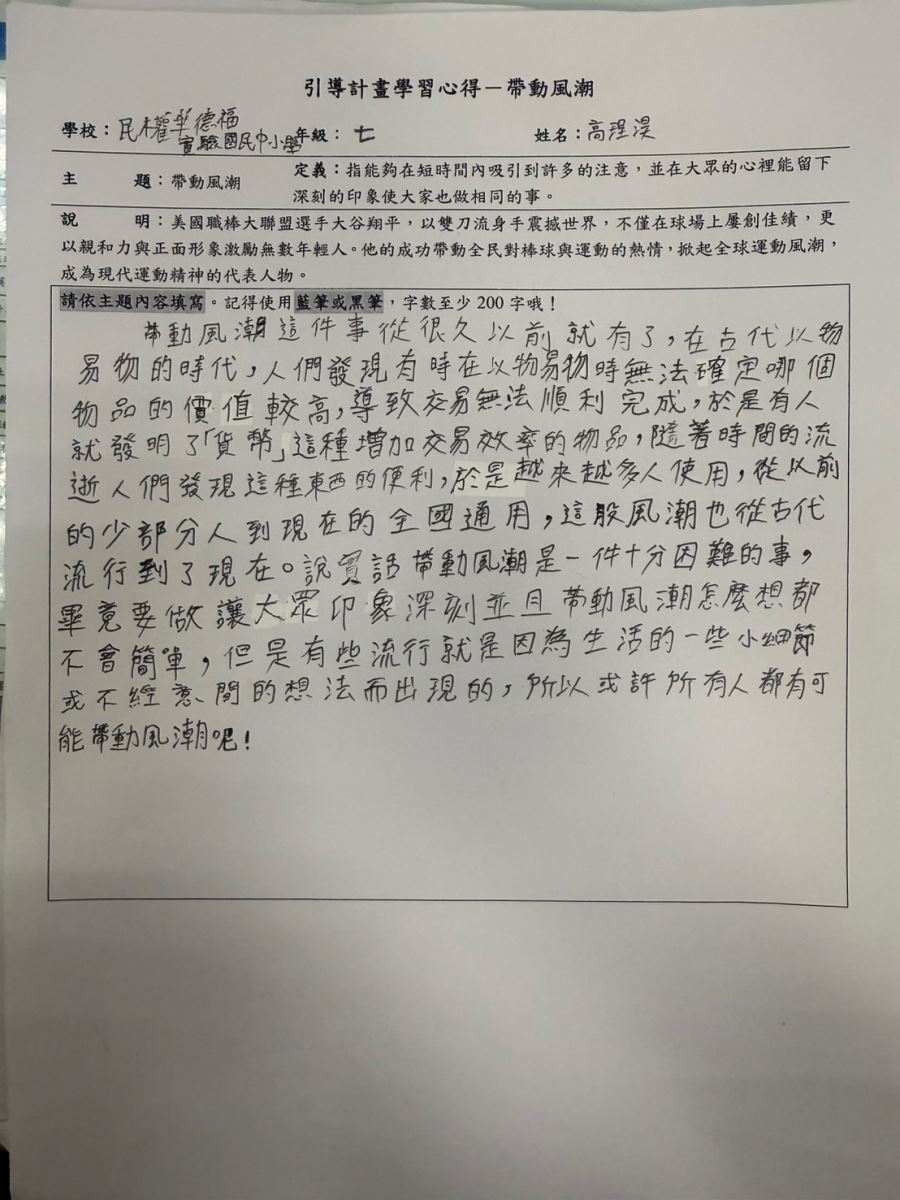 引導計畫學習心得－帶動風潮
學校：民權華德福實驗國民中小學 年級：七 姓名：高程淏
主 題：帶動風潮 定義：指能夠在短時間內吸引到許多的注意，並在大眾的心裡能留下
深刻的印象使大家也做相同的事。
說 明：美國職棒大聯盟選手大谷翔平，以雙刀流身手震撼世界，不僅在球場上屢創佳績，更
以親和力與正面形象激勵無數年輕人。他的成功帶動全民對棒球與運動的熱情，掀起全球運動風潮，
成為現代運動精神的代表人物。
請依主題內容填寫。記得使用藍筆或黑筆，字數至少 200 字哦！
帶動風潮這件事從很久以前就有了，在古代以物
易物的時代，人們發現有時在以物易物時無法確定哪個
物品的價值較高，導致交易無法順利完成，於是有人
就發明了「貨幣」這種增加交易效率的物品，隨著時間的流
逝人們發現這種東西的便利，於是越來越多人使用，從以前
的少部分人到現在的全國通用，這股風潮也從古代
流行到了現在。說實話帶動風潮是一件十分困難的事，
畢竟要做讓大眾印象深刻並且帶動風潮怎麼想都
不會簡單，但是有些流行就是因為生活的一些小細節
或不經意間的想法而出現的，所以或許所有人都有可
能帶動風潮呢！